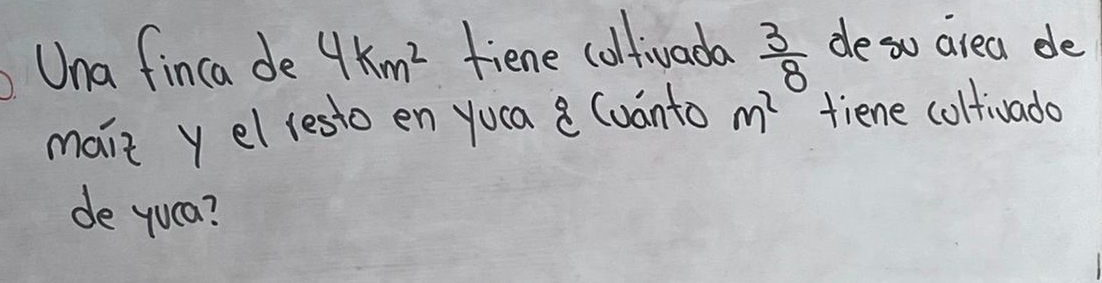 Una finca de 4Km² tiene cultivada 3/8 de su área de
maíz y el resto en yuca ¿ Cuánto m² tiene cultivado
de yuca?